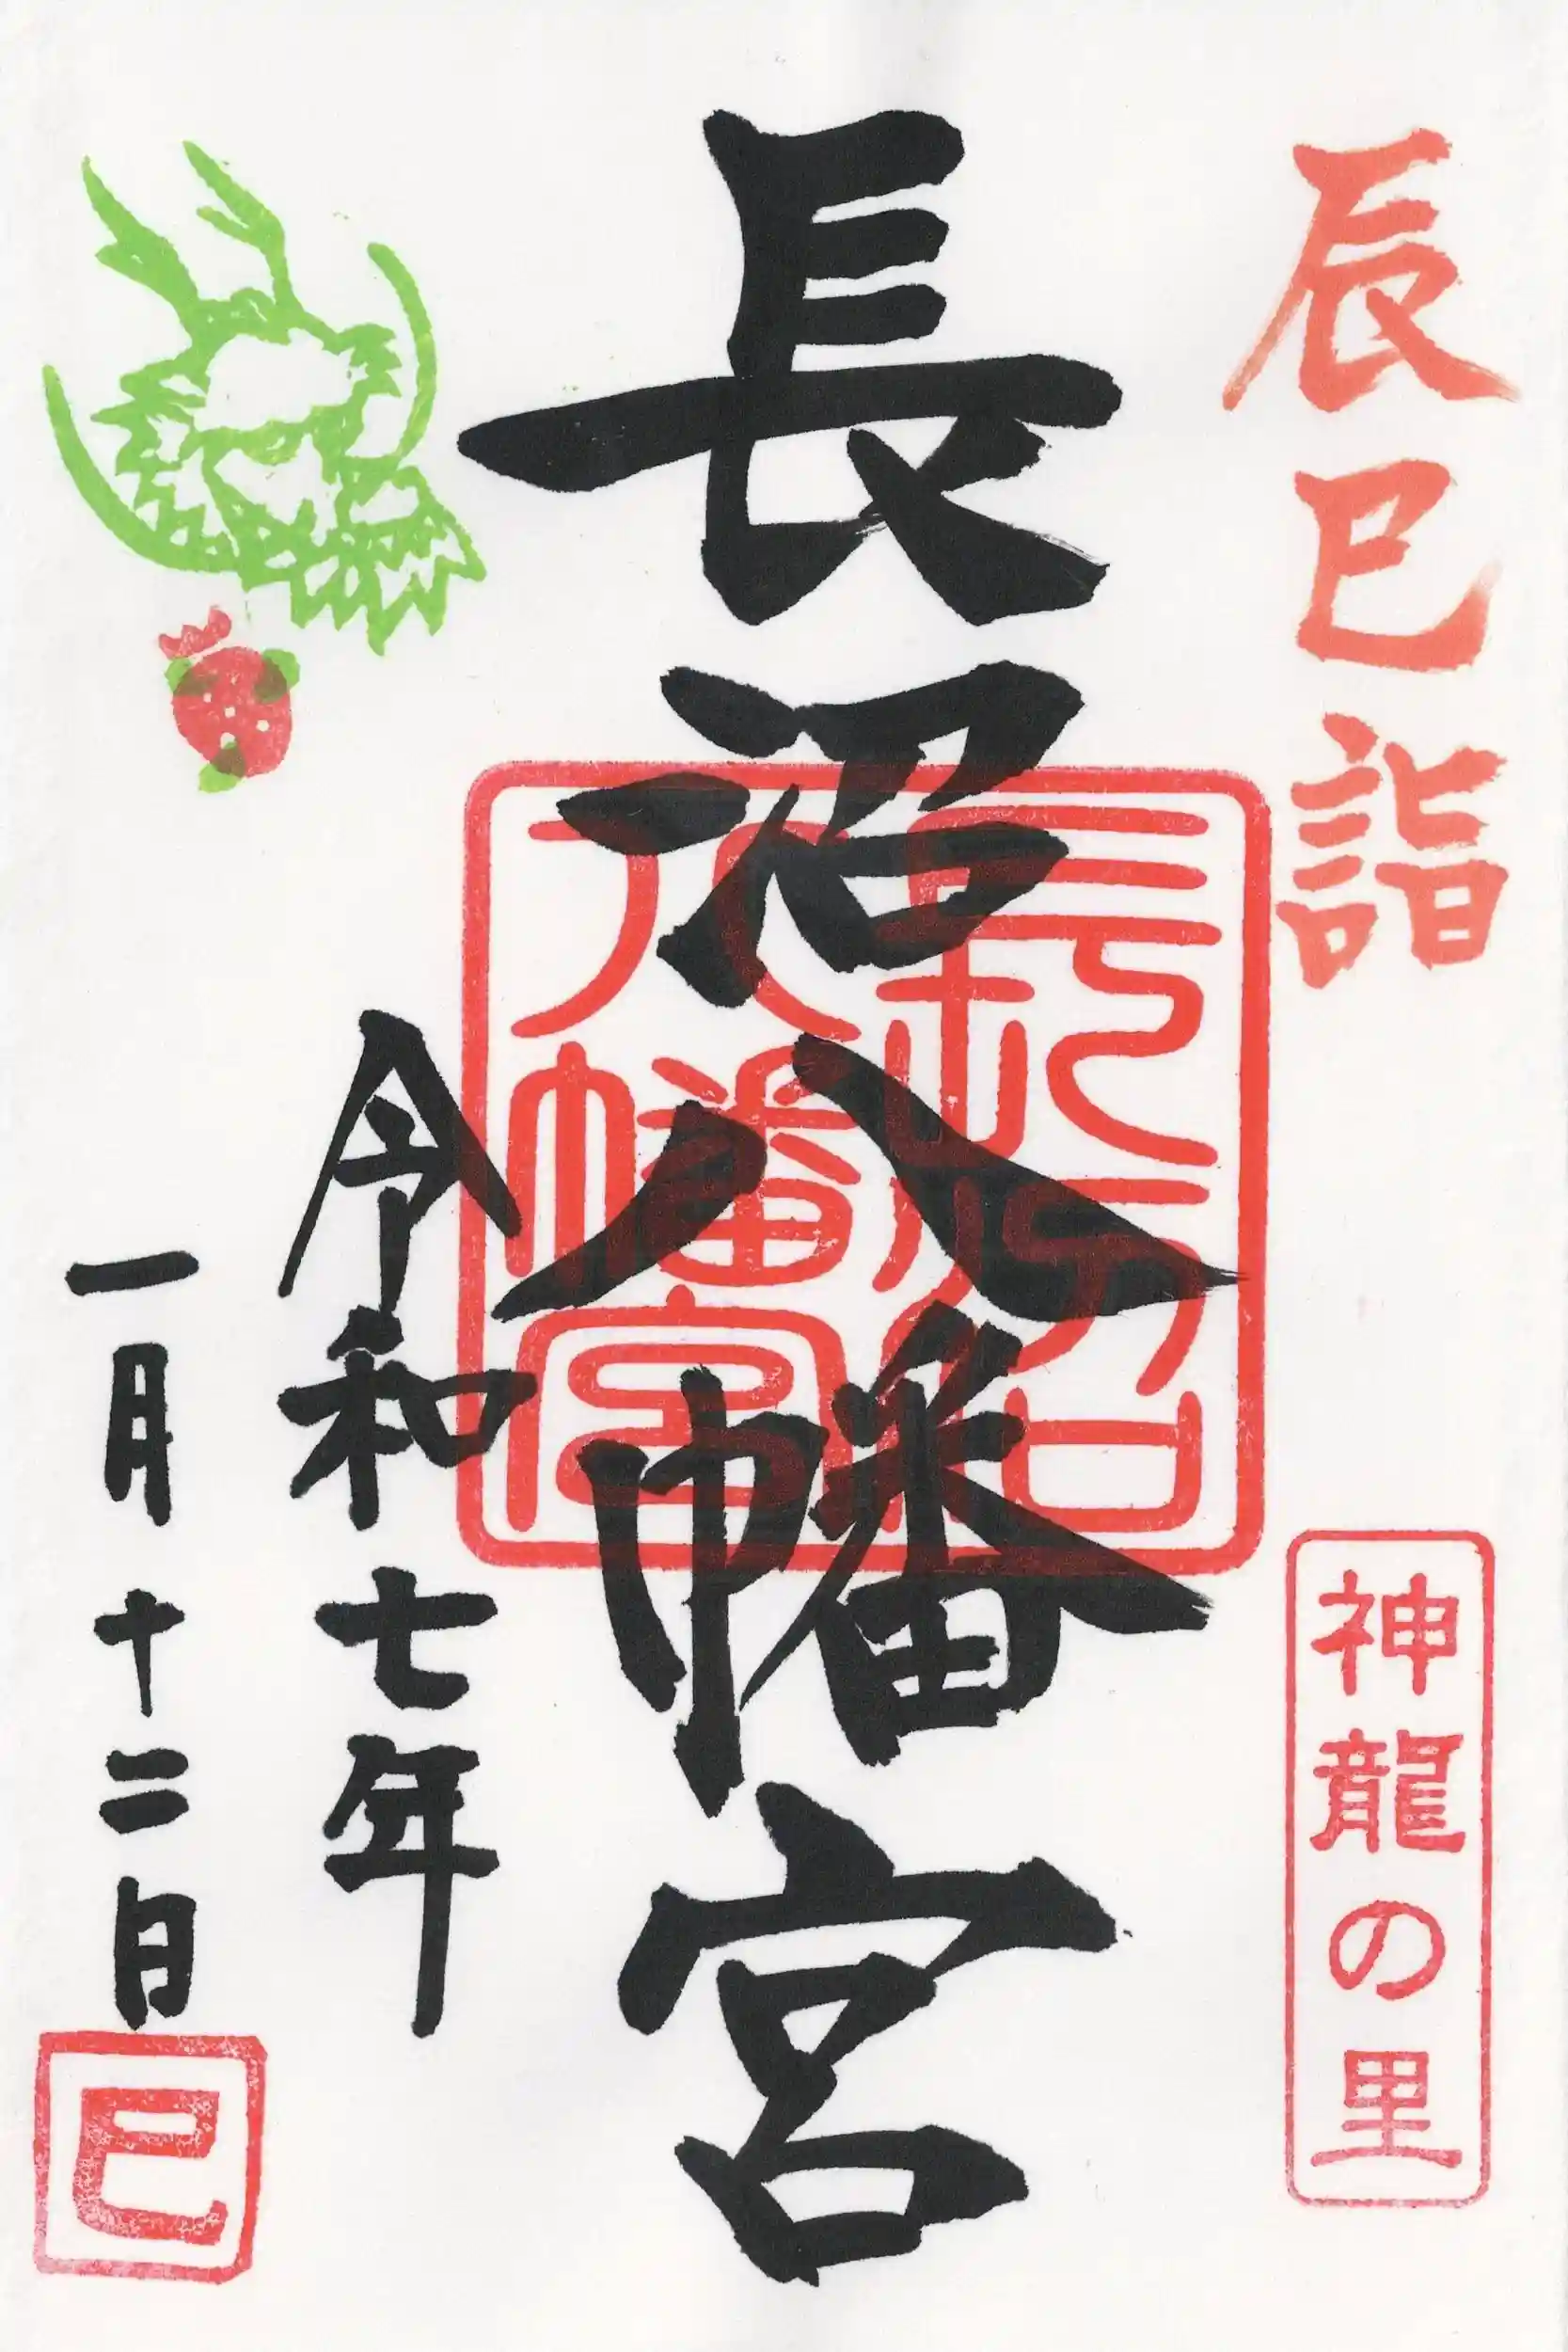 辰巳詣
神龍の里
長沼八幡宮
長沼
八幡宮
令和七年
一月十二日
巳